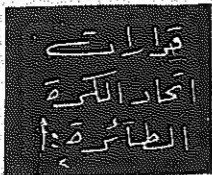 قرارات
اتحاد الكرة
الطائرة :